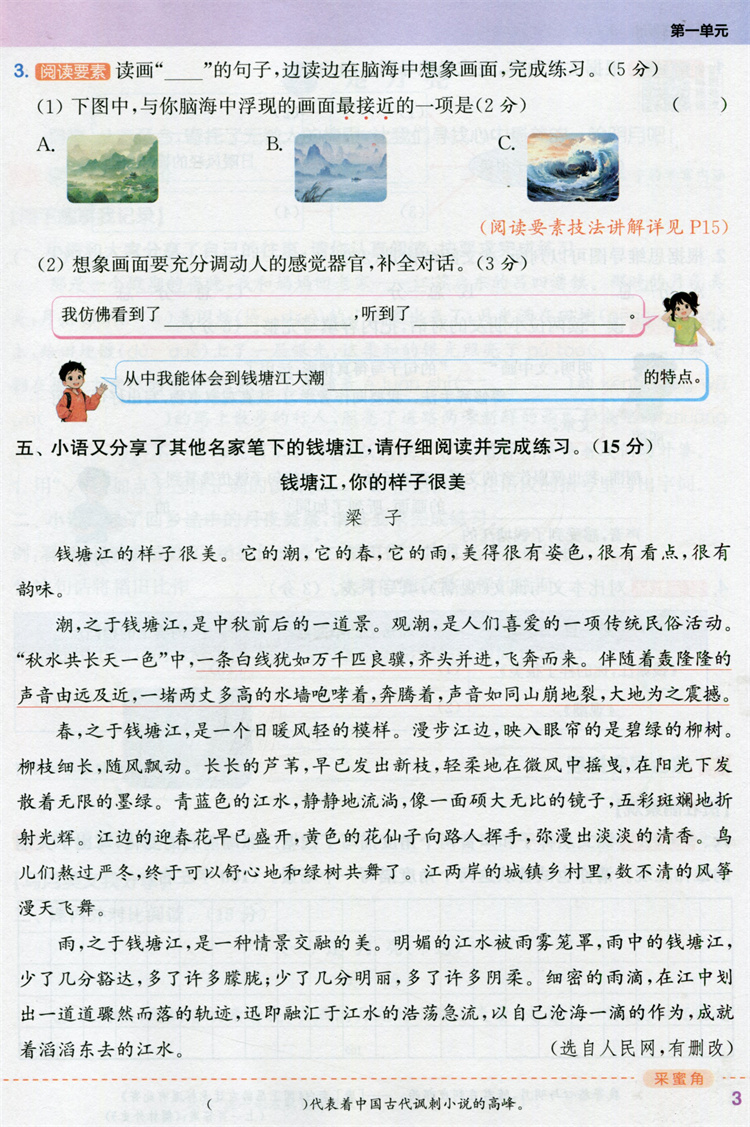 第一单元
3. 阅读要素 读画“____”的句子,边读边在脑海中想象画面,完成练习。(5分)
(1) 下图中,与你脑海中浮现的画面最接近的一项是(2分) ( )
A. B. C.
(阅读要素技法讲解详见P15)
(2) 想象画面要充分调动人的感觉器官,补全对话。(3分)
我仿佛看到了____________,听到了____________。
从中我能体会到钱塘江大潮____________的特点。
五、小语又分享了其他名家笔下的钱塘江,请仔细阅读并完成练习。(15分)
钱塘江,你的样子很美
梁 子
钱塘江的样子很美。它的潮,它的春,它的雨,美得很有姿色,很有看点,很有
韵味。
潮,之于钱塘江,是中秋前后的一道景。观潮,是人们喜爱的一项传统民俗活动。
“秋水共长天一色”中,一条白线犹如万千匹良骥,齐头并进,飞奔而来。伴随着轰隆隆的
声音由远及近,一堵两丈多高的水墙咆哮着,奔腾着,声音如同山崩地裂,大地为之震撼。
春,之于钱塘江,是一个日暖风轻的模样。漫步江边,映入眼帘的是碧绿的柳树。
柳枝细长,随风飘动。长长的芦苇,早已发出新枝,轻柔地在微风中摇曳,在阳光下发
散着无限的墨绿。青蓝色的江水,静静地流淌,像一面硕大无比的镜子,五彩斑斓地折
射光辉。江边的迎春花早已盛开,黄色的花仙子向路人挥手,弥漫出淡淡的清香。鸟
儿们熬过严冬,终于可以舒心地和绿树共舞了。江两岸的城镇乡村里,数不清的风筝
漫天飞舞。
雨,之于钱塘江,是一种情景交融的美。明媚的江水被雨雾笼罩,雨中的钱塘江,
少了几分豁达,多了许多朦胧;少了几分明丽,多了许多阴柔。细密的雨滴,在江中划
出一道道骤然而落的轨迹,迅即融汇于江水的浩荡急流,以自己沧海一滴的作为,成就
着滔滔东去的江水。 (选自人民网,有删改)
采蜜角
( )代表着中国古代讽刺小说的高峰。
3